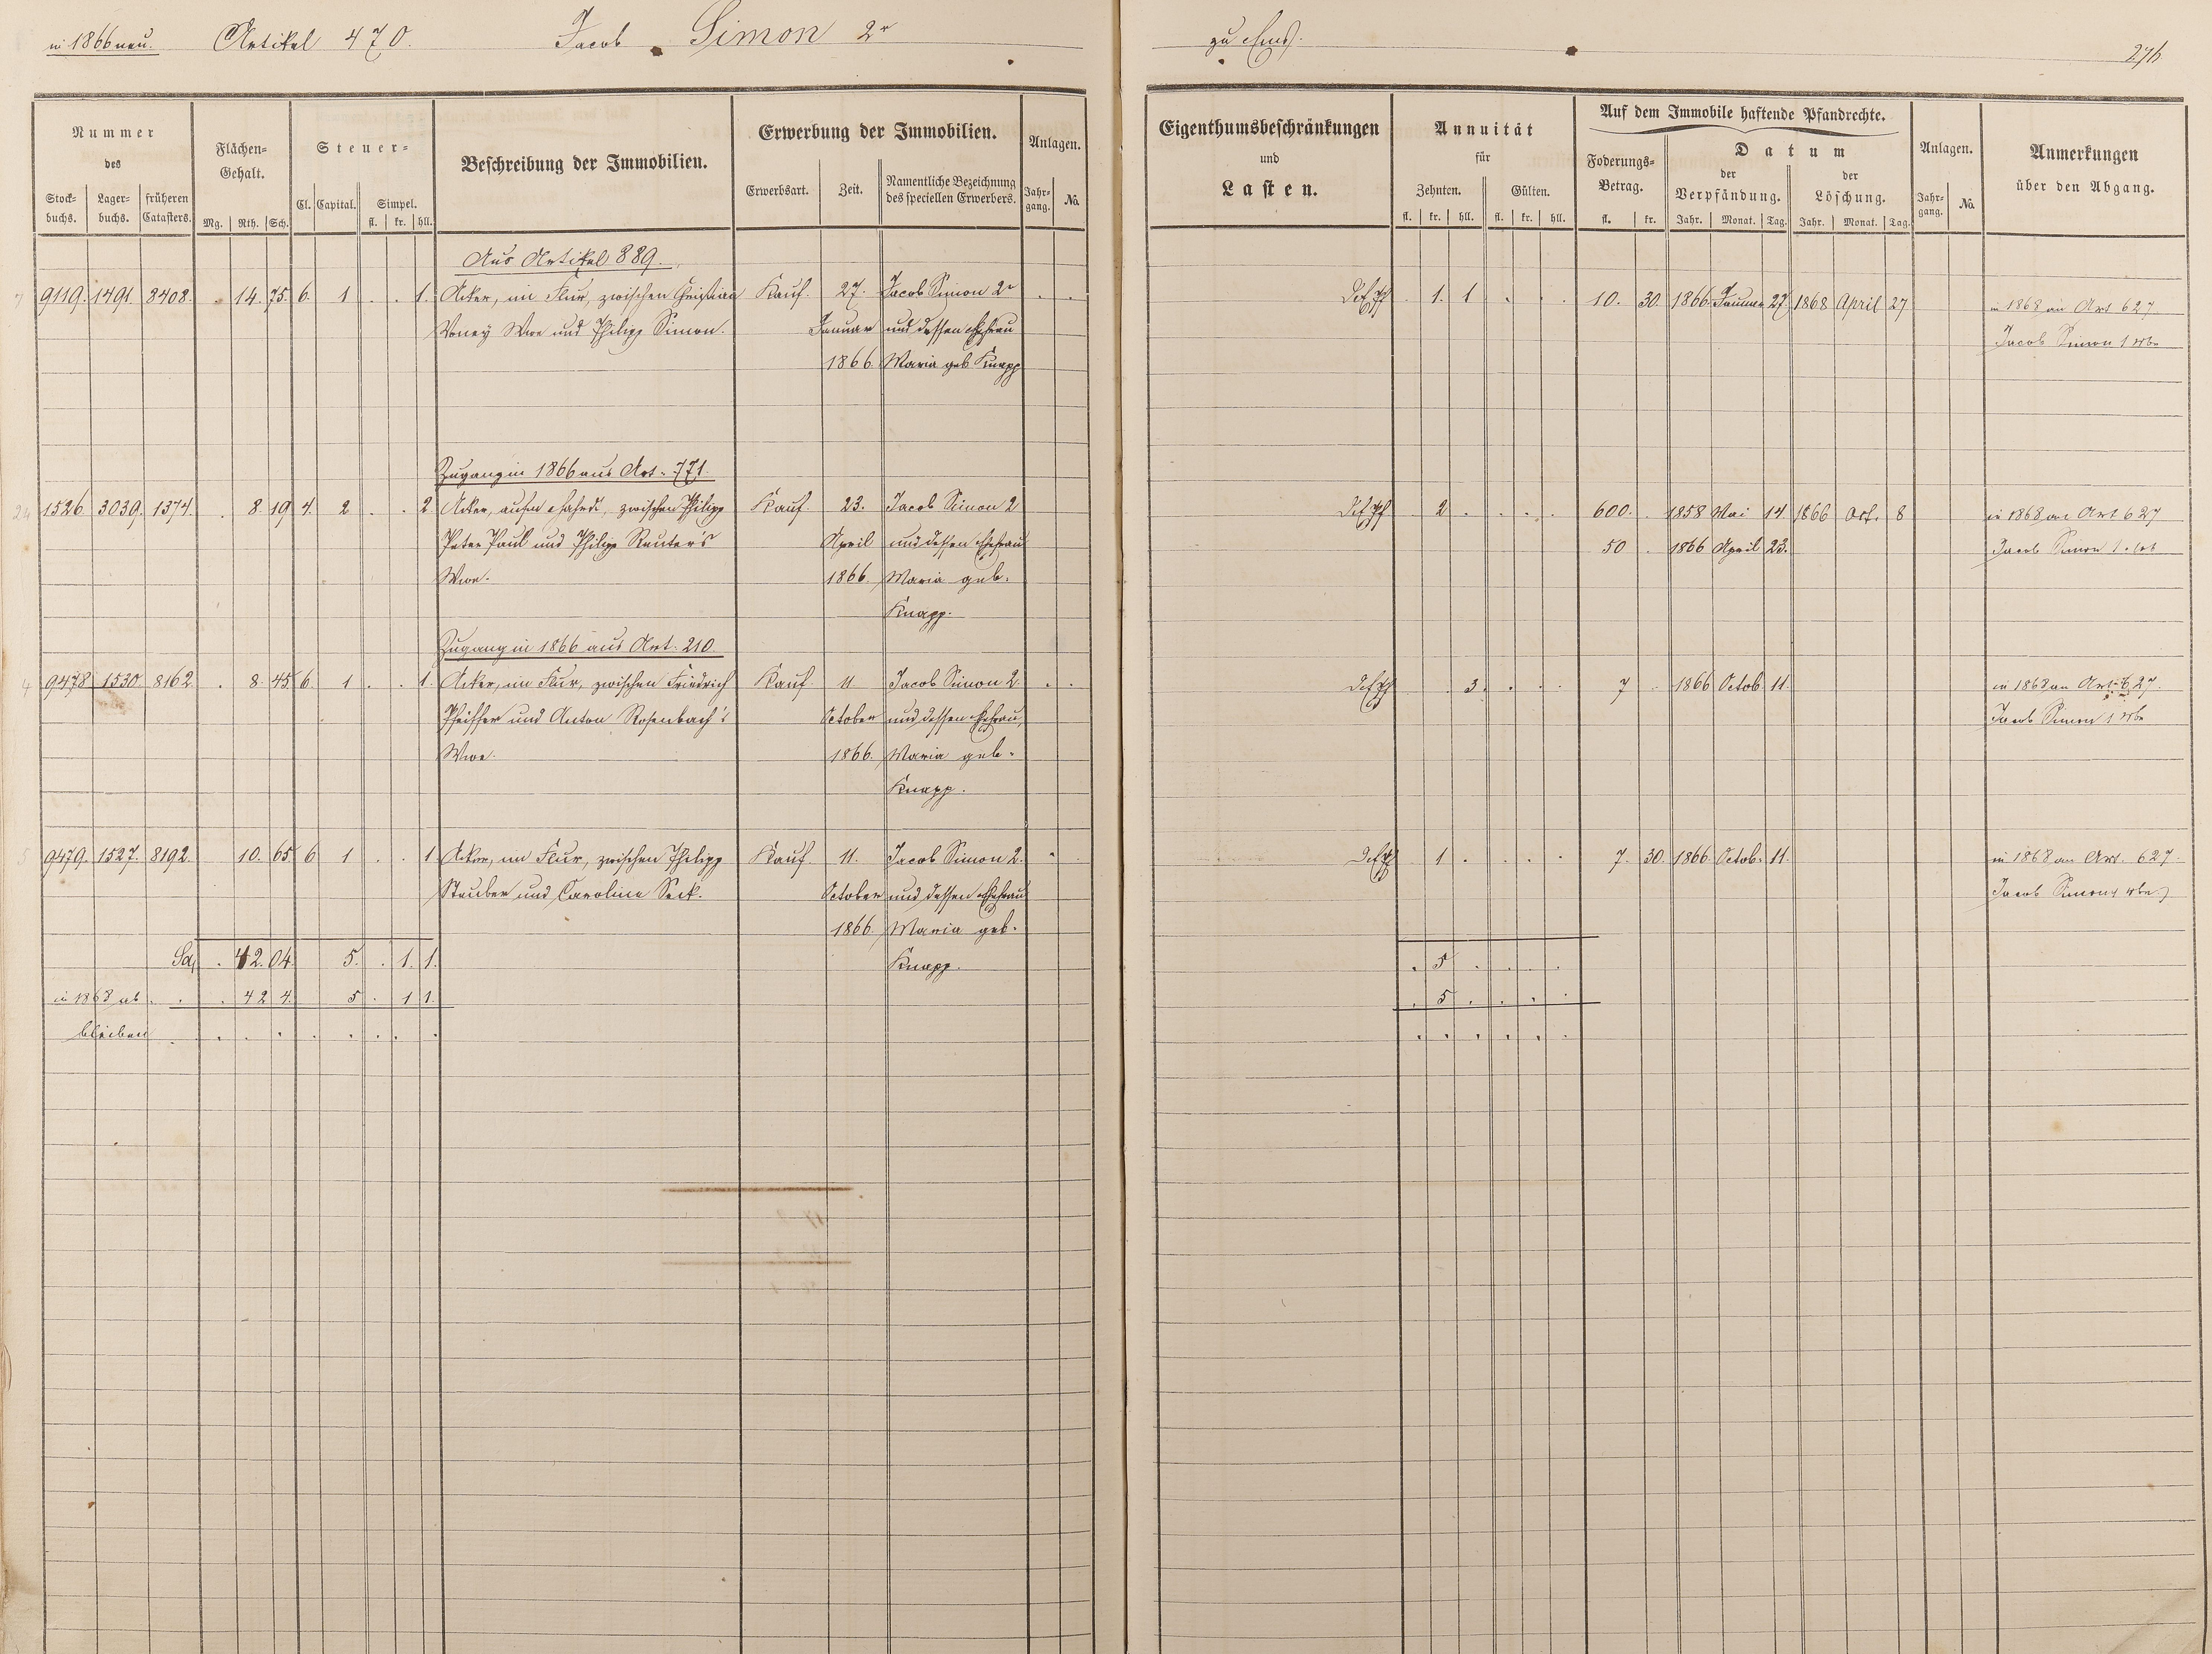 in 1866 neu. Artikel 470. Jacob Simon 2r zu Ems. 276
Nummer des
Stockbuchs. Lagerbuchs. früheren Catasters.
Flächen-Gehalt.
Mg. Rth. Sch.
Steuer-
Cl. Capital. Simpel.
fl. kr. hll.
Beschreibung der Immobilien.
Erwerbung der Immobilien.
Erwerbsart. Zeit. Namentliche Bezeichnung des speciellen Erwerbers.
Anlagen.
Jahrgang. No.
Eigenthumsbeschränkungen
und
Lasten.
Annuität
für
Zehnten. Gülten.
fl. kr. hll. fl. kr. hll.
Auf dem Immobile haftende Pfandrechte.
Foderungs-Betrag.
fl. kr.
Datum
der Verpfändung. der Löschung.
Jahr. Monat. Tag. Jahr. Monat. Tag.
Anlagen.
Jahrgang. No.
Anmerkungen
über den Abgang.
Aus Artikel 889.
7 9119. 1491. 8408. . 14. 75. 6. 1 . . 1. Acker, im Flur, zwischen Christian Kauf. 27. Jacob Simon 2r . . 1. 1 . . . 10. 30. 1866. Januar 27. 1868 April 27. in 1868 an Art 627.
Voney Wwe und Philipp Simon. Januar und dessen Ehefrau Jacob Simon 1
1866. Maria geb Knapp
Zugang in 1866 aus Art. 771.
24 1526. 3039. 1374. . 8 19 4. 2 . . 2 Acker, zwischen Philipp Kauf. 23. Jacob Simon 2 2 . . . . 600. . 1858 Mai 14 1866 Oct. 8 in 1868 an Art 627
Peter Paul und Philipp Reuter's April und dessen Ehefrau 50 . 1866 April 23. Jacob Simon 1
Wwe. 1866. Maria geb.
Knapp.
Zugang in 1866 aus Art. 210.
4 9478 1530 8162 . 8. 45. 6. 1 . . 1. Acker, im Flur, zwischen Friedrich Kauf. 11 Jacob Simon 2. . . . 3. . . . 7 . 1866 Octob 11. in 1868 an Art. 627.
Pfeiffer und Anton Rosenbach's October und dessen Ehefrau, Jacob Simon 1
Wwe. 1866. Maria geb.
Knapp.
5 9479. 1527. 8192. 10. 65 6 1 . . 1. Acker, im Flur, zwischen Philipp Kauf. 11. Jacob Simon 2. . 1 . . . . 7. 30. 1866. Octob. 11. in 1868 an Art. 627.
Stauber und Carolina Seck. October und dessen Ehefrau Jacob Simon 1
1866. Maria geb.
Sa. . 42. 04. 5. . 1. 1. Knapp. . 5 . . . .
in 1868 ab . . . 42 4. 5 . 1 1. . 5 . . . .
bleiben . . . . . . . . . . . . . . .